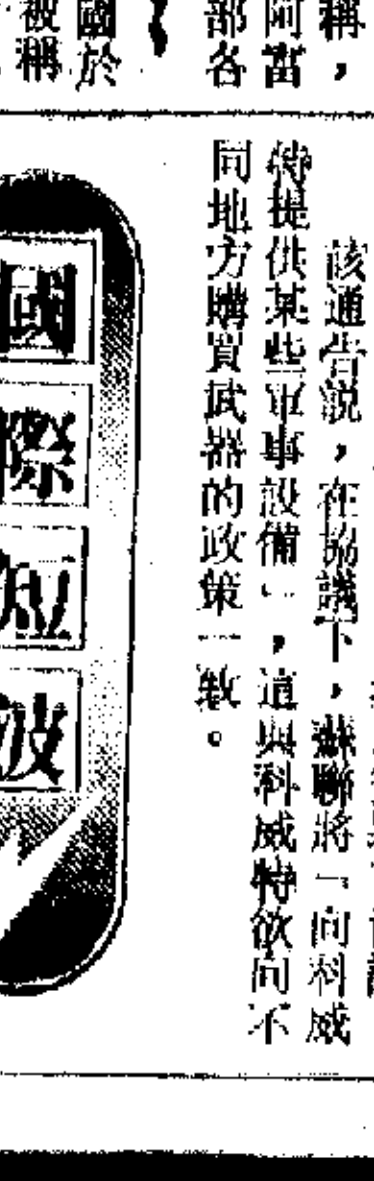 稱，
阿富
部各
國於
被稱
該通告說，在協議下，蘇聯將「向科威
特提供某些軍事設備」，這與科威特欲向不
同地方購買武器的政策一致。
國際短波